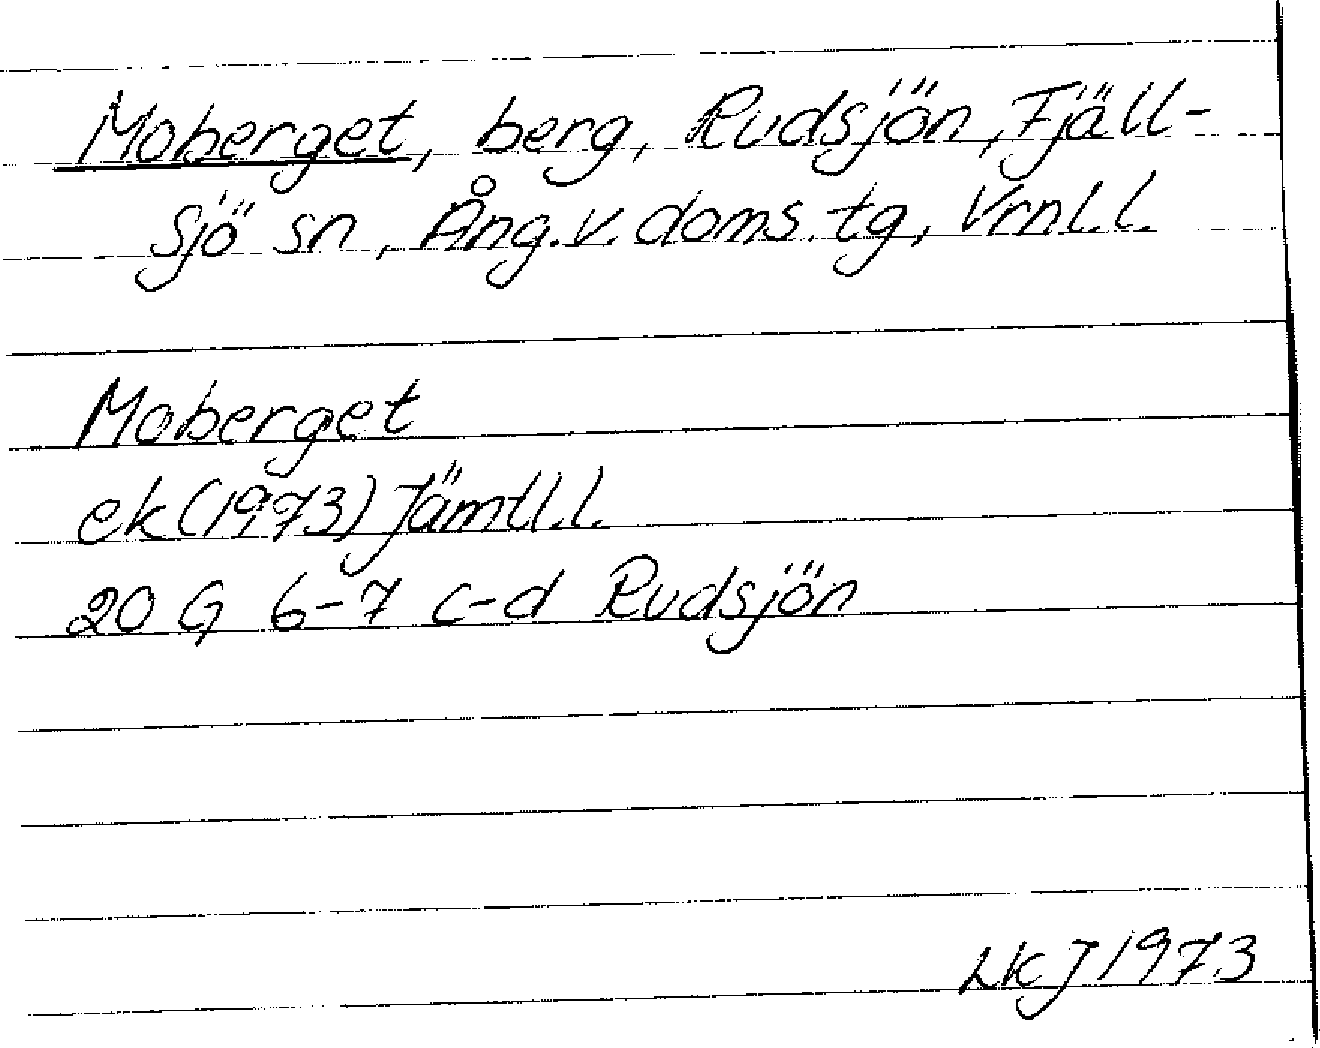 Moberget, berg, Rudsjön, Fjäll-
sjö sn, Ång.v. doms. tg, Vrnl.l.
Moberget
ek (1973) Jämtl.l.
20 G 6-7 c-d Rudsjön
LKJ 1973